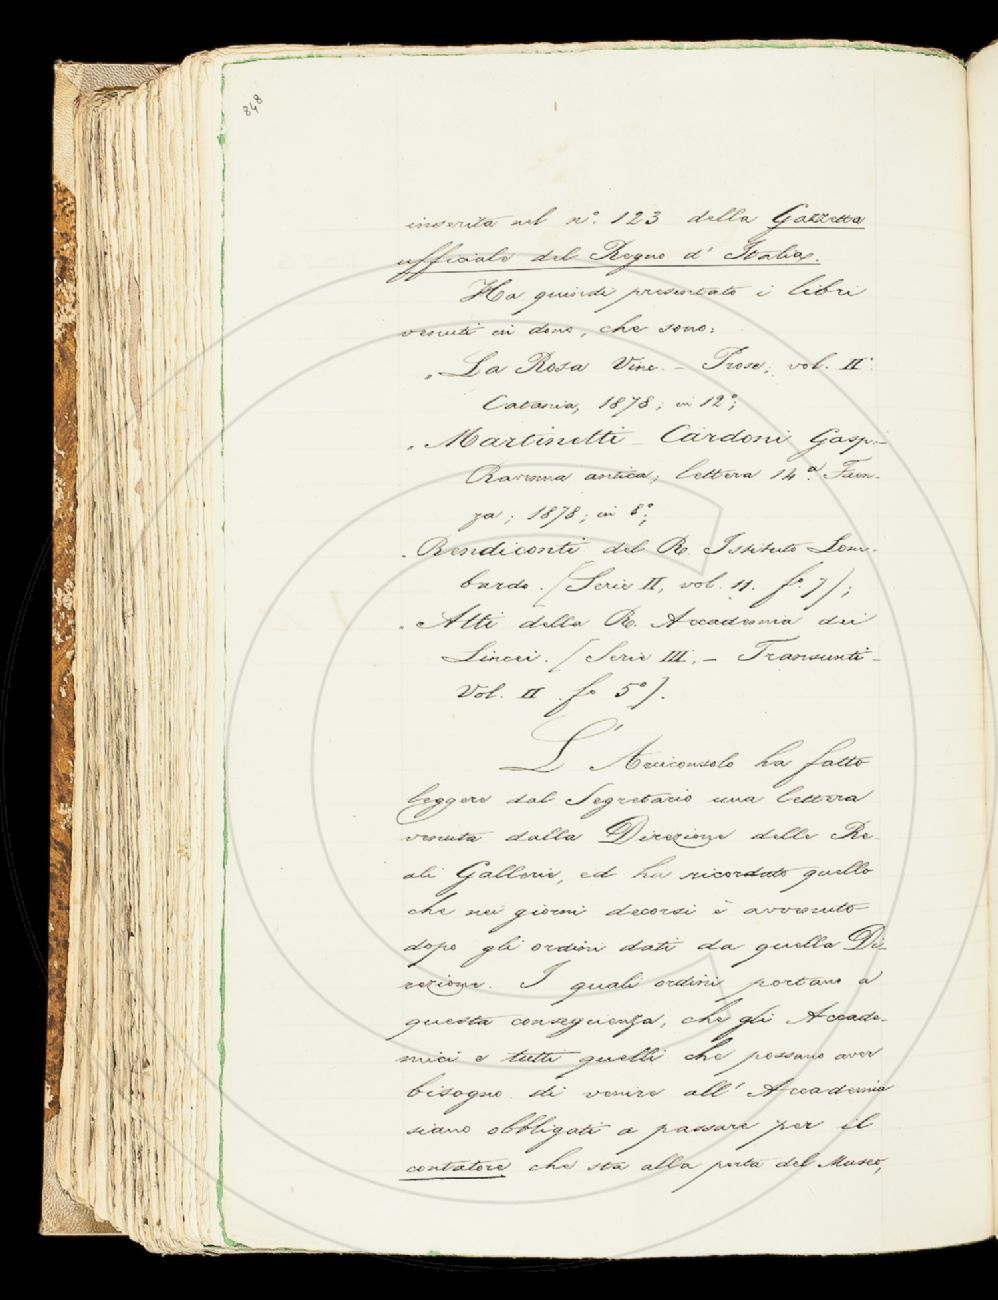 848
inserita nel n.º 123 della Gazzetta
ufficiale del Regno d' Italia.
Ha quindi presentato i libri
venuti in dono, che sono:
„ La Rosa Vinc. – Prose; vol. II.
Catania, 1878; in 12º;
„ Martinetti – Cardoni Gasp. –
Ravenna antica; lettera 14.ª Faen-
za; 1878; in 8º;
„ Rendiconti del R. Istituto Lom-
bardo. (Serie II, vol. 11. fº. 7);
„ Atti della R. Accademia dei
Lincei. (Serie III. – Transunti –
Vol. II fº 5º).
L' Arciconsolo ha fatto
leggere dal Segretario una lettera
venuta dalla Direzione delle Re-
ali Gallerie, ed ha ricordato quello
che nei giorni decorsi è avvenuto
dopo gli ordini dati da quella Di-
rezione. I quali ordini portano a
questa conseguenza, che gli Accade-
mici e tutti quelli che possano aver
bisogno di venire all' Accademia
siano obbligati a passare per il
contatore che sta alla porta del Museo,